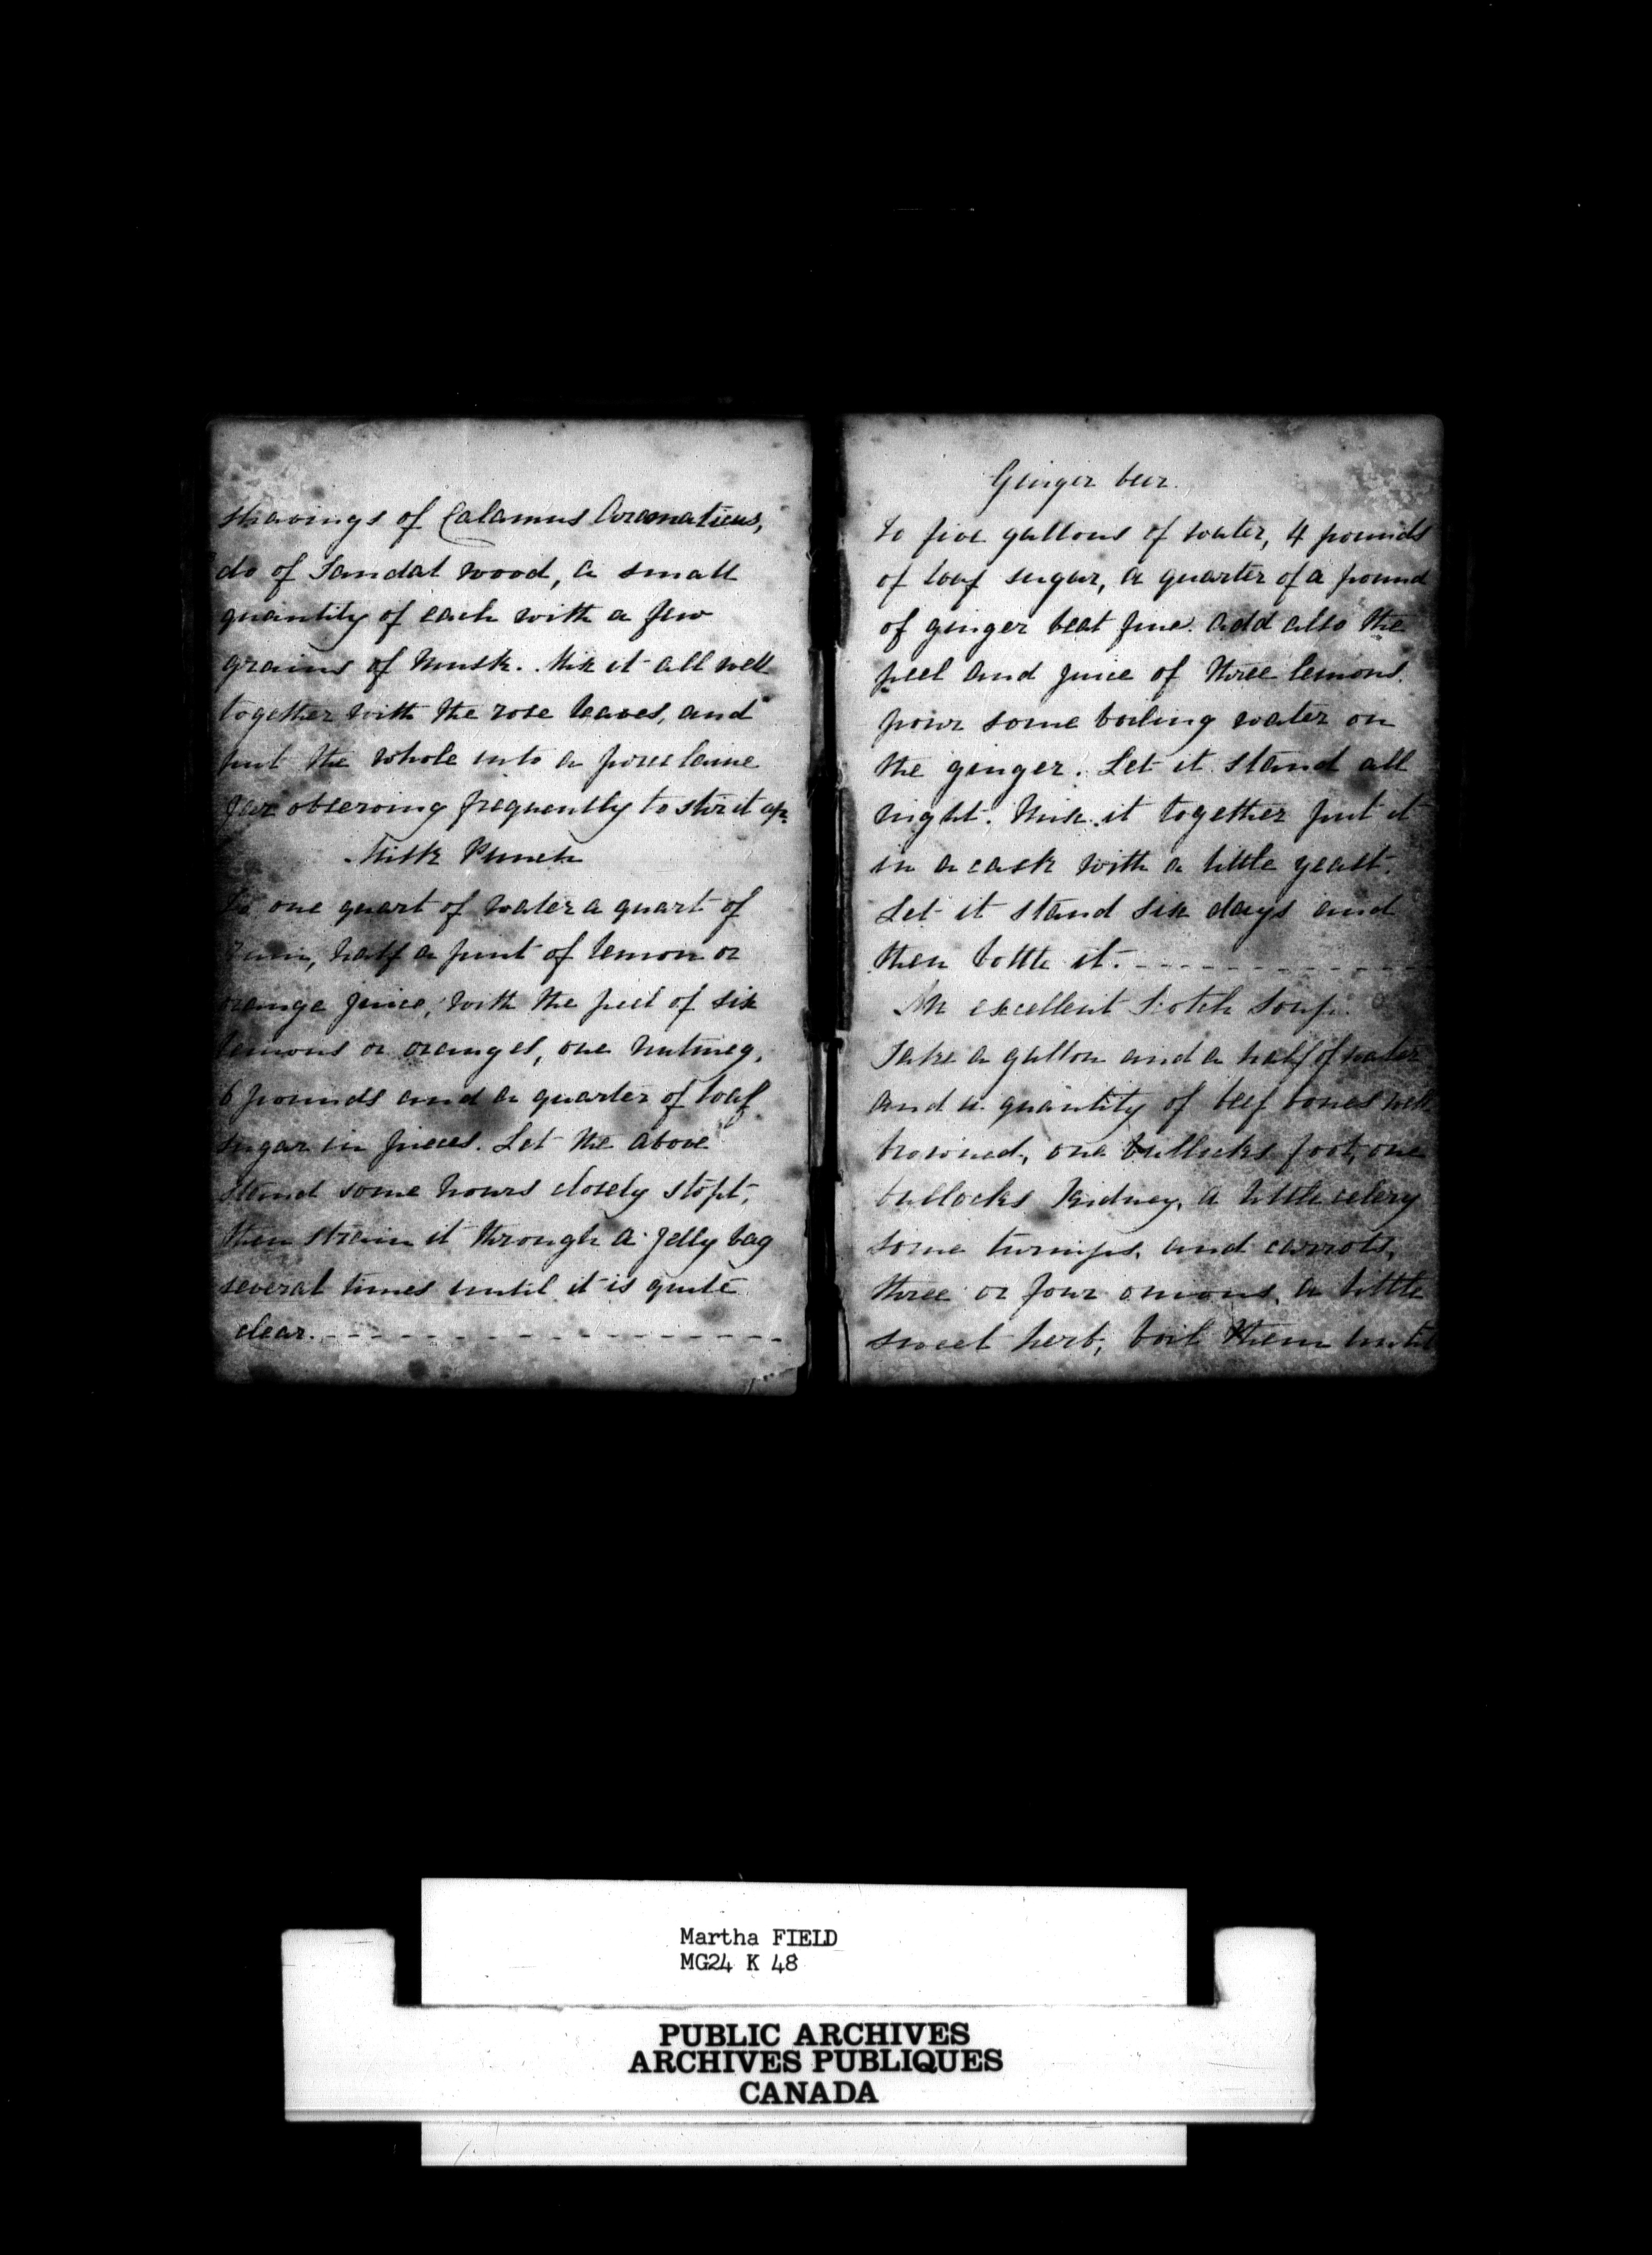 shavings of Calamus Aromaticus,
do of Sandal wood, a small
quantity of each with a few
grains of Musk. Mix it all well
together with the rose leaves, and
put the whole into a porcelaine
jar observing frequently to stir it up.
Milk Punch
To one quart of water a quart of
rum, half a pint of lemon or
orange juice, with the peel of six
lemons or oranges, one nutmeg,
6 pounds and a quarter of loaf
sugar in pieces. Let the above
stand some hours closely stopt,
then strain it through a jelly bag
several times until it is quite
clear.
Ginger beer.
To five gallons of water, 4 pounds
of loaf sugar, a quarter of a pound
of ginger beat fine. add also the
peel and juice of three lemons.
pour some boiling water on
the ginger. Let it stand all
night. Mix it together put it
in a cask with a little yeast.
Let it stand six days and
then bottle it.
An excellent Scotch Soup.
Take a gallon and a half of water
and a quantity of beef bones well
browned, one bullocks foot, one
bullocks kidney, a little celery
some turnips, and carrots,
three or four onions, a little
sweet herb, boil them until
Martha FIELD
MG24 K 48
PUBLIC ARCHIVES
ARCHIVES PUBLIQUES
CANADA